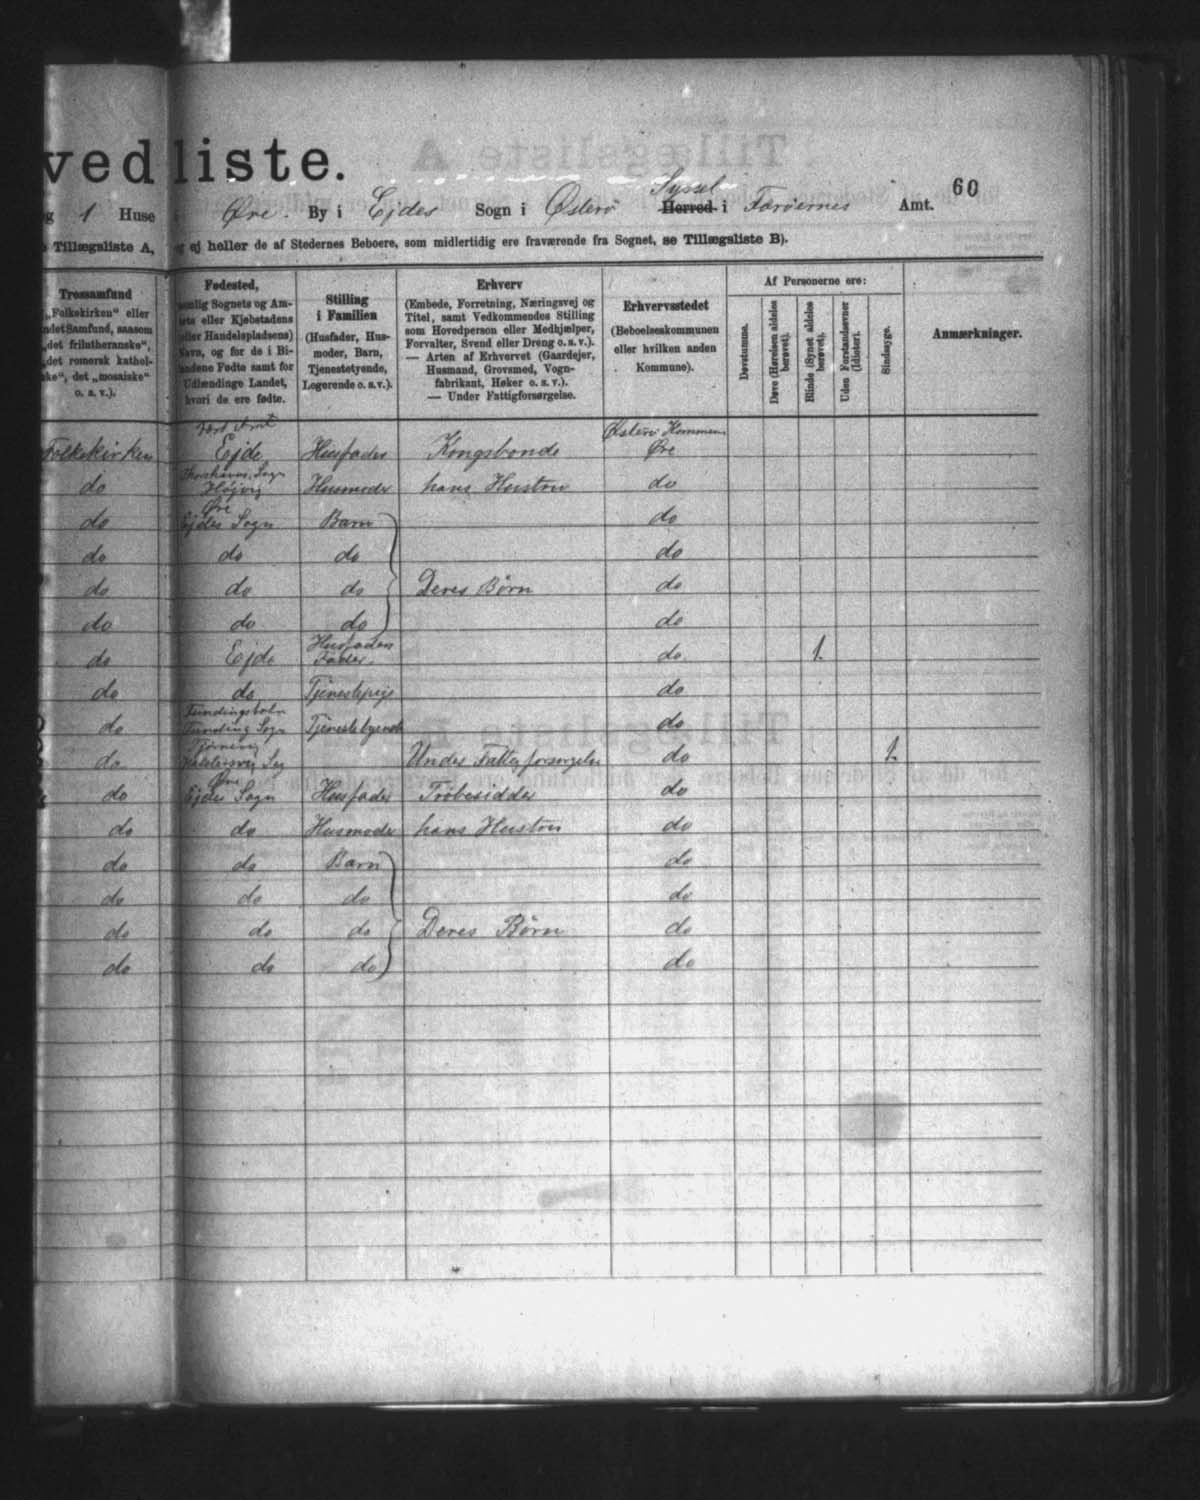 vedliste.
60
og 1 Huse i Øre. By i Ejdes Sogn i Østerø Syssel Herred i Færøernes Amt.
Tillægsliste A, og ej heller de af Stedernes Beboere, som midlertidig ere fraværende fra Sognet, se Tillægsliste B).
Trossamfund
„Folkekirken“ eller
andet Samfund, saasom
„det frilutheranske“,
„det romersk kathol-
ske“, det „mosaiske“
o. s. v.).
Fødested,
nemlig Sognets og Am-
tets eller Kjøbstadens
(eller Handelspladsens)
Navn, og for de i Bi-
landene Fødte samt for
Udlændinge Landet,
hvori de ere fødte.
Stilling
i Familien
(Husfader, Hus-
moder, Barn,
Tjenestetyende,
Logerende o. s. v.).
Erhverv
(Embede, Forretning, Næringsvej og
Titel, samt Vedkommendes Stilling
som Hovedperson eller Medhjælper,
Forvalter, Svend eller Dreng o. s. v.).
— Arten af Erhvervet (Gaardejer,
Husmand, Grovsmed, Vogn-
fabrikant, Høker o. s. v.).
— Under Fattigforsørgelse.
Erhvervsstedet
(Beboelseskommunen
eller hvilken anden
Kommune).
Af Personerne ere:
Døvstumme.
Døve (Hørelsen aldeles berøvet).
Blinde (Synet aldeles berøvet).
Uden Forstandsevner (Idioter).
Sindssyge.
Anmærkninger.
Folkekirken Ejde Husfader Kongsbonde Østerø Kommun Øre
do Thorshavns Sogn Højvig Husmoder hans Hustru do
do Øre Ejdes Sogn Barn do
do do do do
do do do Deres Børn do
do do do do
do Ejde Husfaders Fader. do 1.
do do Tjenestepige do
do Fundingsbotn Funding Sogn Tjenestetyende do
do Under Fattigforsørgelse do 1.
do Øre Ejdes Sogn Husfader Trøbesidder do
do do Husmoder hans Hustru do
do do Barn do
do do do do
do do do Deres Børn do
do do do do